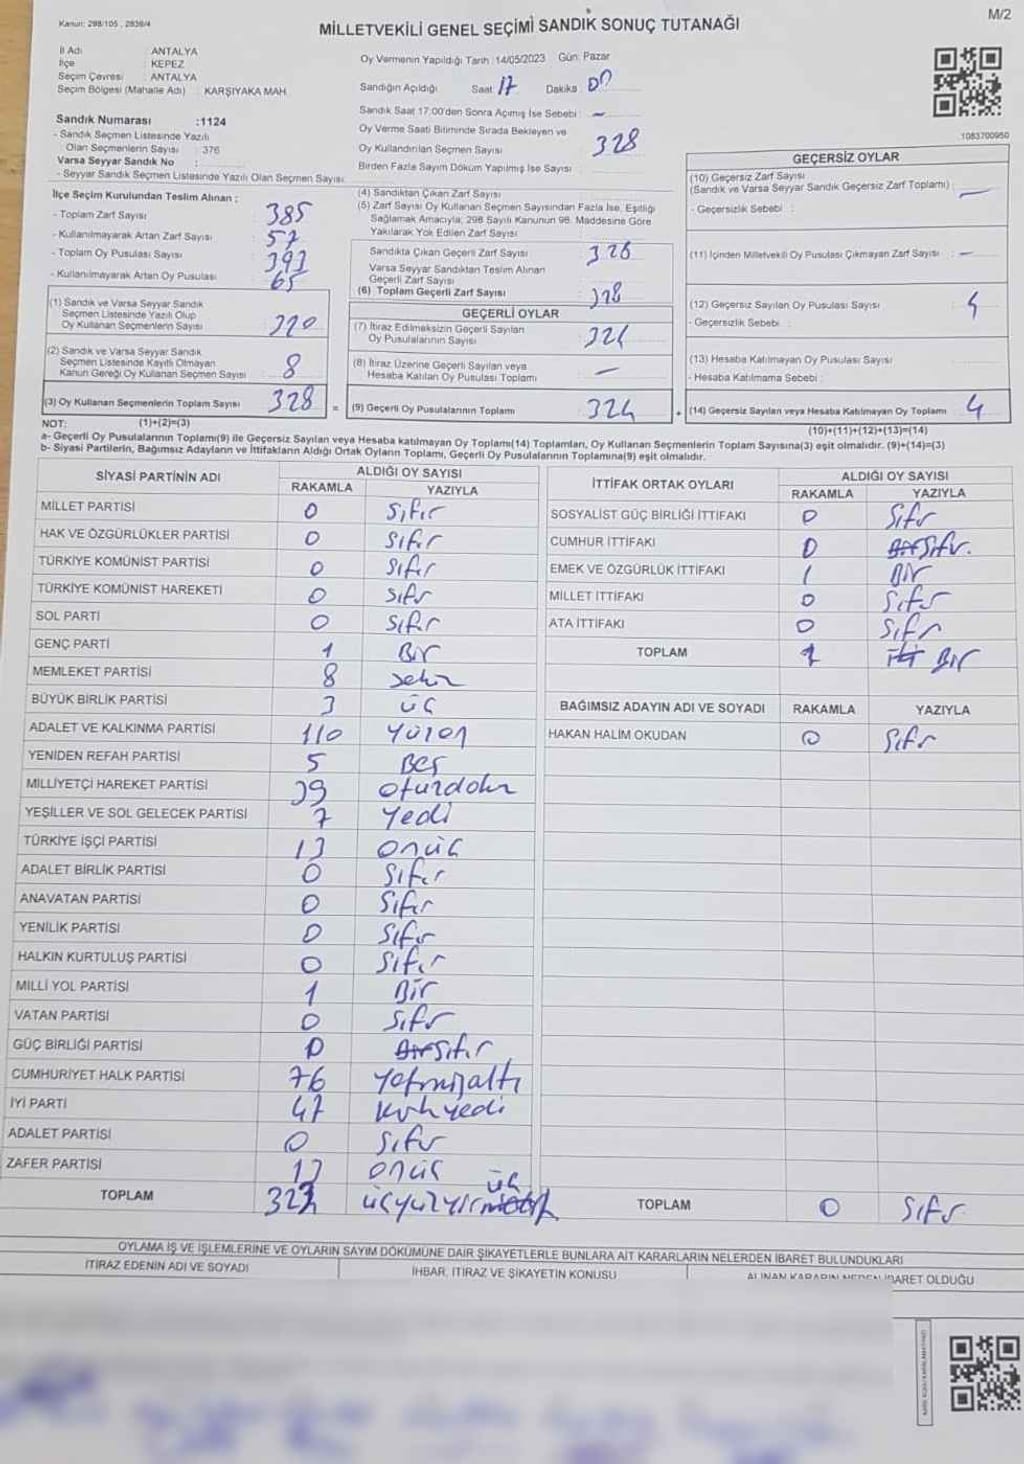 Kanun: 298/105 , 2839/4
M/2
MİLLETVEKİLİ GENEL SEÇİMİ SANDIK SONUÇ TUTANAĞI
İl Adı : ANTALYA
İlçe : KEPEZ
Seçim Çevresi : ANTALYA
Seçim Bölgesi (Mahalle Adı) : KARŞIYAKA MAH.
Sandık Numarası :1124
- Sandık Seçmen Listesinde Yazılı
Olan Seçmenlerin Sayısı : 376
Varsa Seyyar Sandık No :
- Seyyar Sandık Seçmen Listesinde Yazılı Olan Seçmen Sayısı:
Oy Vermenin Yapıldığı Tarih :14/05/2023 Gün: Pazar
Sandığın Açıldığı Saat 17 Dakika 00
Sandık Saat 17:00'den Sonra Açılmış İse Sebebi : -
Oy Verme Saati Bitiminde Sırada Bekleyen ve
Oy Kullandırılan Seçmen Sayısı 328
Birden Fazla Sayım Döküm Yapılmış İse Sayısı :
1083700950
İlçe Seçim Kurulundan Teslim Alınan :
- Toplam Zarf Sayısı : 385
- Kullanılmayarak Artan Zarf Sayısı : 57
- Toplam Oy Pusulası Sayısı : 393
- Kullanılmayarak Artan Oy Pusulası : 65
(1) Sandık ve Varsa Seyyar Sandık
Seçmen Listesinde Yazılı Olup
Oy Kullanan Seçmenlerin Sayısı : 320
(2) Sandık ve Varsa Seyyar Sandık
Seçmen Listesinde Kayıtlı Olmayan
Kanun Gereği Oy Kullanan Seçmen Sayısı : 8
(3) Oy Kullanan Seçmenlerin Toplam Sayısı 328 =
(4) Sandıktan Çıkan Zarf Sayısı
(5) Zarf Sayısı Oy Kullanan Seçmen Sayısından Fazla İse, Eşitliği
Sağlamak Amacıyla; 298 Sayılı Kanunun 98. Maddesine Göre
Yakılarak Yok Edilen Zarf Sayısı :
Sandıkta Çıkan Geçerli Zarf Sayısı : 328
Varsa Seyyar Sandıktan Teslim Alınan
Geçerli Zarf Sayısı :
(6) Toplam Geçerli Zarf Sayısı : 328
GEÇERLİ OYLAR
(7) İtiraz Edilmeksizin Geçerli Sayılan
Oy Pusulalarının Sayısı : 324
(8) İtiraz Üzerine Geçerli Sayılan veya
Hesaba Katılan Oy Pusulası Toplamı : -
(9) Geçerli Oy Pusulalarının Toplamı 324 +
GEÇERSİZ OYLAR
(10) Geçersiz Zarf Sayısı
(Sandık ve Varsa Seyyar Sandık Geçersiz Zarf Toplamı) : -
- Geçersizlik Sebebi :
(11) İçinden Milletvekili Oy Pusulası Çıkmayan Zarf Sayısı : -
(12) Geçersiz Sayılan Oy Pusulası Sayısı : 4
- Geçersizlik Sebebi :
(13) Hesaba Katılmayan Oy Pusulası Sayısı :
- Hesaba Katılmama Sebebi :
(14) Geçersiz Sayılan veya Hesaba Katılmayan Oy Toplamı 4
NOT: (1)+(2)=(3) (10)+(11)+(12)+(13)=(14)
a- Geçerli Oy Pusulalarının Toplamı(9) ile Geçersiz Sayılan veya Hesaba katılmayan Oy Toplamı(14) Toplamları, Oy Kullanan Seçmenlerin Toplam Sayısına(3) eşit olmalıdır. (9)+(14)=(3)
b- Siyasi Partilerin, Bağımsız Adayların ve İttifakların Aldığı Ortak Oyların Toplamı, Geçerli Oy Pusulalarının Toplamına(9) eşit olmalıdır.
SİYASİ PARTİNİN ADI ALDIĞI OY SAYISI
RAKAMLA YAZIYLA
MİLLET PARTİSİ 0 Sıfır
HAK VE ÖZGÜRLÜKLER PARTİSİ 0 Sıfır
TÜRKİYE KOMÜNİST PARTİSİ 0 Sıfır
TÜRKİYE KOMÜNİST HAREKETİ 0 Sıfır
SOL PARTİ 0 Sıfır
GENÇ PARTİ 1 Bir
MEMLEKET PARTİSİ 8 Sekiz
BÜYÜK BİRLİK PARTİSİ 3 üç
ADALET VE KALKINMA PARTİSİ 110 Yüzon
YENİDEN REFAH PARTİSİ 5 Beş
MİLLİYETÇİ HAREKET PARTİSİ 39 Otuzdokuz
YEŞİLLER VE SOL GELECEK PARTİSİ 7 Yedi
TÜRKİYE İŞÇİ PARTİSİ 13 Onüç
ADALET BİRLİK PARTİSİ 0 Sıfır
ANAVATAN PARTİSİ 0 Sıfır
YENİLİK PARTİSİ 0 Sıfır
HALKIN KURTULUŞ PARTİSİ 0 Sıfır
MİLLİ YOL PARTİSİ 1 Bir
VATAN PARTİSİ 0 Sıfır
GÜÇ BİRLİĞİ PARTİSİ 0 Sıfır
CUMHURİYET HALK PARTİSİ 76 Yetmişaltı
İYİ PARTİ 47 Kırkyedi
ADALET PARTİSİ 0 Sıfır
ZAFER PARTİSİ 13 Onüç
TOPLAM 323 üçyüzyirmi üç
İTTİFAK ORTAK OYLARI ALDIĞI OY SAYISI
RAKAMLA YAZIYLA
SOSYALİST GÜÇ BİRLİĞİ İTTİFAKI 0 Sıfır
CUMHUR İTTİFAKI 0 Sıfır.
EMEK VE ÖZGÜRLÜK İTTİFAKI 1 Bir
MİLLET İTTİFAKI 0 Sıfır
ATA İTTİFAKI 0 Sıfır
TOPLAM 1 Bir
BAĞIMSIZ ADAYIN ADI VE SOYADI RAKAMLA YAZIYLA
HAKAN HALİM OKUDAN 0 Sıfır
TOPLAM 0 Sıfır
OYLAMA İŞ VE İŞLEMLERİNE VE OYLARIN SAYIM DÖKÜMÜNE DAİR ŞİKAYETLERLE BUNLARA AİT KARARLARIN NELERDEN İBARET BULUNDUKLARI
İTİRAZ EDENİN ADI VE SOYADI İHBAR, İTİRAZ VE ŞİKAYETİN KONUSU ALINAN KARARIN NEDEN İBARET OLDUĞU